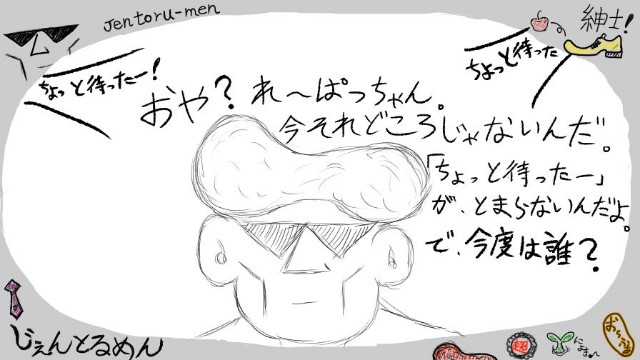 Jentoru-men
紳士!
ちょっと待ったー!
ちょっと待った
おや?れ〜ぱっちゃん。
今それどころじゃないんだ。
「ちょっと待ったー」
が、とまらないんだよ。
で、今度は誰?
じぇんとるめん